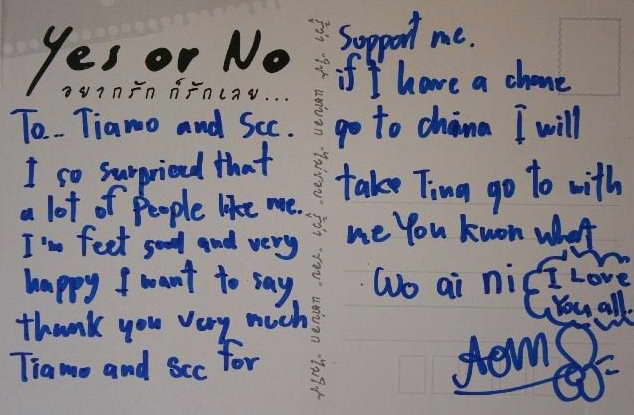 Yes or No
อยากรัก ก็รักเลย...
To... Tiamo and Scc.
I so surpriced that
a lot of people like me.
I'm feet good and very
happy I want to say
thank you very much
Tiamo and Scc for
Support me.
if I have a chane
go to chaina I will
take Tina go to with
me You kuon what
Wo ai ni
I Love
You all.
AOM